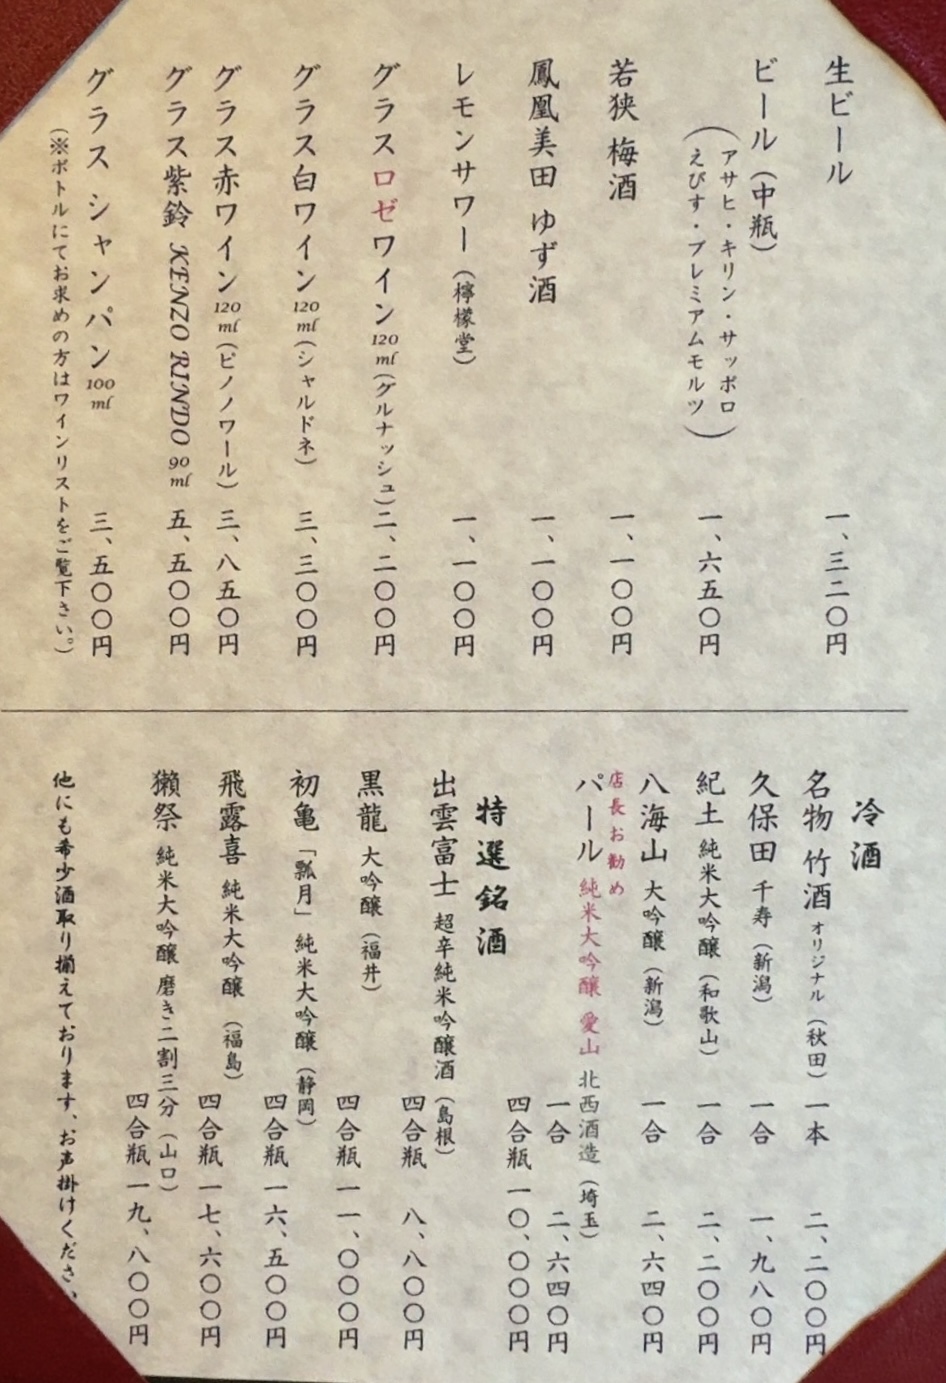 生ビール 一、三二〇円
ビール（中瓶）
（アサヒ・キリン・サッポロ
えびす・プレミアムモルツ） 一、六五〇円
若狭 梅酒 一、一〇〇円
鳳凰美田 ゆず酒 一、一〇〇円
レモンサワー（檸檬堂） 一、一〇〇円
グラスロゼワイン120ml（グルナッシュ） 二、二〇〇円
グラス白ワイン120ml（シャルドネ） 三、三〇〇円
グラス赤ワイン120ml（ピノノワール） 三、八五〇円
グラス紫鈴 KENZO RINDO 90ml 五、五〇〇円
グラス シャンパン100ml 三、五〇〇円
（※ボトルにてお求めの方はワインリストをご覧下さい。）
冷酒
名物 竹酒 オリジナル（秋田） 一本 二、二〇〇円
久保田 千寿（新潟） 一合 一、九八〇円
紀土 純米大吟醸（和歌山） 一合 二、二〇〇円
八海山 大吟醸（新潟） 一合 二、六四〇円
店長お勧め
パール 純米大吟醸 愛山 北西酒造（埼玉）
一合 二、六四〇円
四合瓶 一〇、〇〇〇円
特選銘酒
出雲富士 超辛純米吟醸酒（島根）
四合瓶 八、八〇〇円
黒龍 大吟醸（福井）
四合瓶 一一、〇〇〇円
初亀「瓢月」純米大吟醸（静岡）
四合瓶 一六、五〇〇円
飛露喜 純米大吟醸（福島）
四合瓶 一七、六〇〇円
獺祭 純米大吟醸 磨き二割三分（山口）
四合瓶 一九、八〇〇円
他にも希少酒取り揃えております、お声掛けくださ